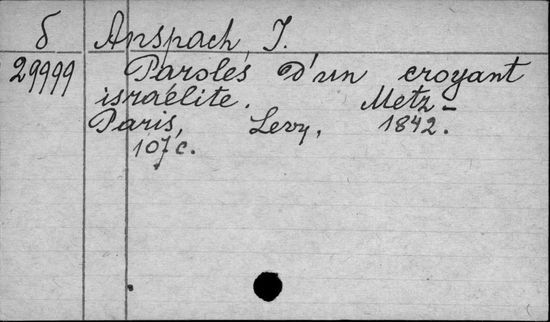 б Anspach, I.
29999 Paroles d'un croyant
israélite. Metz -
Paris, Levy, 1842.
107 c.